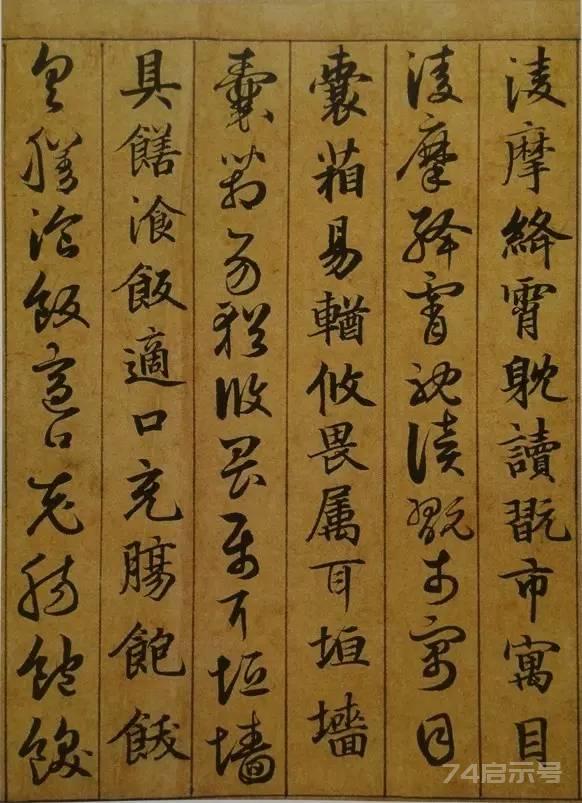 淩摩絳霄躭讀翫市寓目
淩摩絳霄躭讀翫市寓目
囊葙易輶攸畏属耳垣墻
囊葙易輶攸畏属耳垣墻
具饍飡飯適口充腸飽飫
具饍飡飯適口充腸飽飫
74启示号